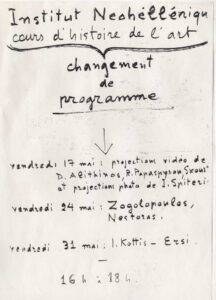 Institut Neohéllénique
cours d'histoire de l'art
changement
de
programme
vendredi 17 mai : projection vidéo de
D. Alithinos, R. Papaspyrou
et projection photo de J. Spiteri.
vendredi 24 mai : Zogolopoulos,
Nestoras.
vendredi 31 mai : I. Kottis - Ersi.
16 h à 18 h.